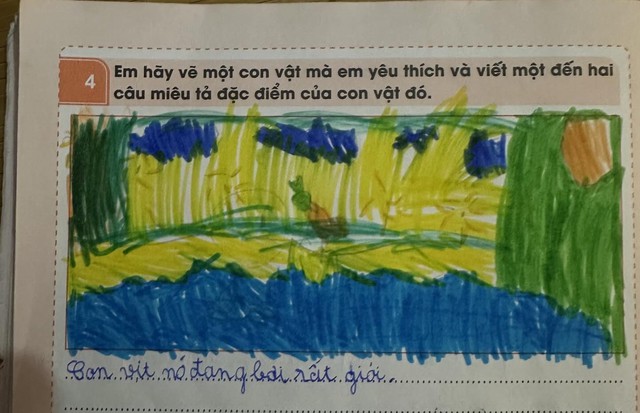 4
Em hãy vẽ một con vật mà em yêu thích và viết một đến hai
câu miêu tả đặc điểm của con vật đó.
Con vịt nó đang bơi rất giỏi.